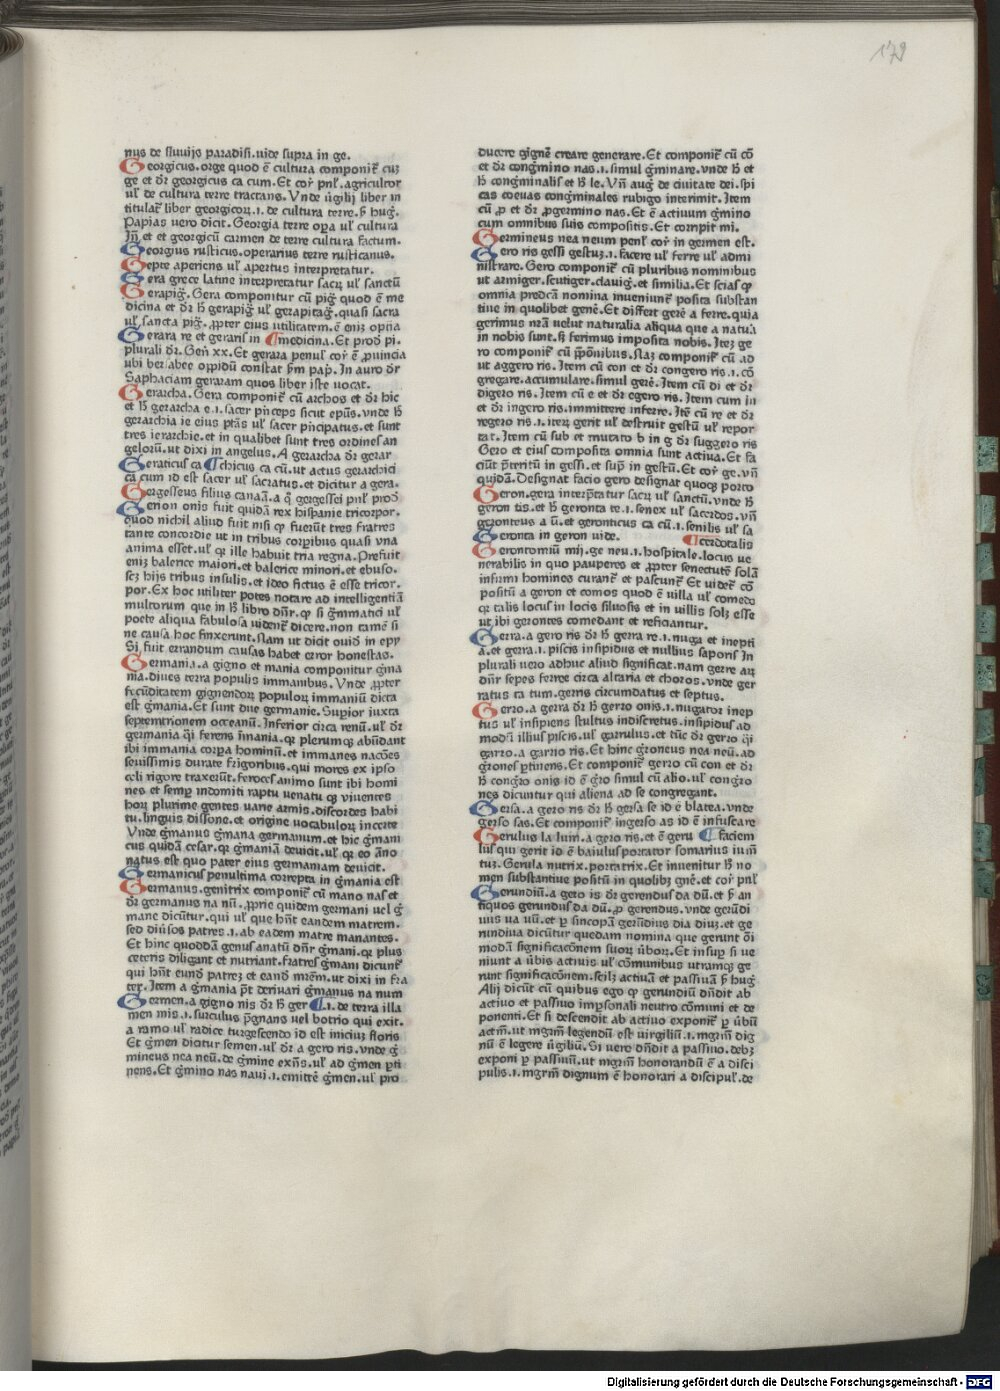 179
nus de fluuijs paradisi.uide supra in ge.
Georgicus.orge quod ē cultura componiť cuȝ
ge et dr̄ georgicus ca cum. Et cor̄ pnľ.agricultor
uľ de cultura terre tractans. Vnde ūgilij liber in
titulať liber georgicoꝝ.i.de cultura terre.ẜ huḡ.
Papias uero dicit. Georgia terre oꝑa uľ cultura
Jn̄ et et georgicū carmen de terre cultura factum.
Georgius rusticus.operarius terre rusticanus.
Gepte aperiens uľ apertus interpretatur.
Gera grece latine interpretatur sacꝝ uľ sanctū
Gerapiḡ. Gera componitur cū piḡ quod ē me
dicina et dr̄ ħ gerapiḡ uľ gerapitaḡ.quasi sacra
uľ sancta piḡ.ꝓpter eius utilitatem.ē eniȝ optīa
Gerara re et geraris in ¶medicina. Et prod pi.
plurali dr̄. Geń xx. Et gerara penuľ cor̄ ē ꝓuincia
ubi bersabee oppidū constat ẜm pap̄. Jn auro dr̄
Saphaciam geraram quos liber iste uocat.
Gerarcha. Gera componiť cū archos et dr̄ hic
et ħ gerarcha e.i.sacer pn̄ceps sicut epūs.vnde ħ
gerarchia ie eius ptās uľ sacer pn̄cipatus.et sunt
tres ierarchie.et in qualibet sunt tres ordines an
gelorū.ut dixi in angelus. A gerarcha dr̄ gerar
Geraticus ca ¶chicus ca cū.ut actus gerarchici
ca cum id est sacer uľ sacratus.et dicitur a gera.
Gergesseus filius canaā.a q̄ gergessei pnľ prod̄
Gerion onis fuit quidā rex hispanie tricorpor.
quod nichil aliud fuit nisi ꝙ fuerūt tres fratres
tante concordie ut in tribus corꝑibus quasi vna
anima esset.uľ ꝙ ille habuit tria regna. Prefuit
eniȝ balerice maiori.et balerice minori.et ebuso.
scȝ hijs tribus insulis.et ideo fictus ē esse tricor.
por. Ex hoc utiliter potes notare ad intelligentiā
multorum que in ħ libro dn̄r.ꝙ si gr̄mmatici uľ
poete aliqua fabulosa uidenť dicere.non tamē si
ne causa hoc finxerunt. Nam ut dicit ouid̄ in epy
Si fuit errandum causas habet error honestas.
Germania.a gigno et mania componitur gm̄a
nia.diues terra populis immanibus. Vnde ꝓpter
fecūditatem gignendoꝝ populoꝝ immaniū dicta
est gm̄ania. Et sunt due germanie. Suꝑior iuxta
septemtrionem oceanū. Jnferior circa renū.uľ dr̄
germania q̄i ferens īmania.ꝙ plerumꝙ abūdant
ibi immania corꝑa hominū.et immanes nacōes
seuissimis durate frigoribus.qui mores ex ipso
celi rigore traxerūt.feroces animo sunt ibi homi
nes et semꝑ indomiti raptu uenatu ꝙ viuentes
hoꝝ plurime gentes uarie armis.discordes habi
tu.linguis dissone.et origine vocabuloꝝ incerte
Vnde gm̄anus gm̄ana germanum.et hic gm̄ani
cus quidā cesar.ꝙ gm̄aniā deuicit.uľ ꝙ eo āno
natus est quo pater eius germaniam deuicit.
Germanicus penultima correpta in gm̄ania est
Germanus.genitrix componiť cū mano nas et
dr̄ germanus na nū.ꝓprie quidem germani uel ḡ
mane dicūtur.qui uľ que hn̄t eandem matrem.
sed diuſos patres.i.ab eadem matre manantes.
Et hinc quoddā genus anatū dn̄r gm̄ani.ꝙ plus
ceteris diligant et nutriant.fratres gm̄ani dicunť
qui hn̄t eund̄ patreȝ et eand̄ mr̄em.ut dixi in fra
ter. Jtem a gm̄ania pt̄ deriuari gm̄anus na num
Germen.a gigno nis dr̄ ħ ger ¶.i.de terra illa
men mis.i.surculus pgnans vel botrio qui exit.
a ramo uľ radice turgescendo id est iniciuȝ floris
Et gm̄en dicatur semen.uľ dr̄ a gero ris.vnde ḡ
mineus nea neū.de gm̄ine exn̄s.uľ ad gm̄en ꝑti
nens. Et gm̄ino nas naui.i.emittē gm̄en.uľ pro
ducere gignē creare generare. Et componiť cū cō
et dr̄ congm̄ino nas.i.simul gm̄inare.vnde ħ et
ħ congm̄inalis et ħ le. Vn̄ auḡ de ciuitate dei.spi
cas coeuas congm̄inales rubigo interimit. Jtem
cū ꝓ et dr̄ ꝓgermino nas. Et ē actiuum gm̄ino
cum omnibus suis compositis. Et corripit mi.
Germineus nea neum penľ cor̄ in germen est.
Gero ris gessi gestuȝ.i.facere uľ ferre uľ admi
nistrare. Gero componiť cū pluribus nominibus
ut armiger.scutiger.clauiḡ.et similia. Et scias ꝙ
omnia predcā nomina inueniunť posita substan
tiue in quolibet genē. Et differt gerē a ferre.quia
gerimus nr̄a uelut naturalia aliqua que a natuā
in nobis sunt.ẜ ferimus imposita nobis. Jteȝ ge
ro componiť cū p̄pōnibus. Naȝ componiť cū ad
ut aggero ris. Jtem cū con et dr̄ congero ris.i.cō
gregare.accumulare.simul gerē. Jtem cū di et dr̄
digero ris. Jtem cū e et dr̄ egero ris. Jtem cum in
et dr̄ ingero ris.immittere inferre. Jtē cū re et dr̄
regero ris.i.iteꝝ gerit uľ destruit gestū uľ repor
tat. Jtem cū sub et mutato b in g dr̄ suggero ris
Gero et eius composita omnia sunt actiua. Et fa
ciūt p̄teritū in gessi.et sup̄ in gestū. Et cor̄ ge.vn̄
quidā. Designat facio gero designat quoqȝ porto
Geron.gera interp̄tatur sacꝝ uľ sanctū.vnde ħ
geron tis.et ħ geronta te.i.senex uľ sacerdos.vn̄
geronteus a ū.et geronticus ca cū.i.senilis uľ sa
Geronta in geron uide. ¶cerdotalis
Gerontomiū mij.ge neu.i.hospitale.locus ue
nerabilis in quo pauperes et ꝓpter senectutē solā
infirmi homines curanť et pascunť. Et uideť cō
positū a geron et comos quod ē uilla uľ comedo
ꝙ talis locus in locis siluosis et in uillis solȝ esse
ut ibi gerontes comedant et reficiantur.
Gerra.a gero ris dr̄ ħ gerra re.i.nuga et inepti
ā.et gerra.i.piscis insipidus et nullius saporis Jn
plurali uero adhuc aliud significat.nam gerre aꝝ
dn̄r sepes ferree circa altaria et choros.vnde ger
ratus ta tum.gerris circumdatus et septus.
Gerro.a gerra dr̄ ħ gerro onis.i.nugator inep
tus uľ insipiens stultus indiscretus.insipidus ad
modū illius piscis.uľ garrulus.et tūc dr̄ gerro q̄i
garro.a garrio ris. Et hinc gr̄oneus nea neū.ad
gr̄ones ꝑtinens. Et componiť gerro cū con et dr̄
ħ congr̄o onis id ē gr̄o simul cū alio.uľ congr̄o
nes dicuntur qui aliena ad se congregant.
Gersa.a gero ris dr̄ ħ gersa se id ē blatea.vnde
gerso sas. Et componiť ingerso as id ē infuscare
Gerulus la lum.a gero ris.et ē geru ¶faciem
lus qui gerit id ē baiulus portator somarius iumī
tuȝ. Gerula nutrix.portatrix. Et inuenitur ħ no
men substantiue positū in quolibȝ gnē.et cor̄ pnľ
Gerundiū.a gero is dr̄ gerendus da dū.et ẜ an
tiquos gerundus da dū.ꝓ gerendus.vnde gerūdi
uus ua uū.et ꝑ sincopā gerūdius dia diuȝ.et ge
rundiua dicūtur quedam nomina que gerunt oī
modā significacōnem suoꝝ ūboꝝ. Et insuꝑ si ue
niunt a ūbis actiuis uľ cōmunibus utramqȝ ge
runt significacōnem.scilȝ actiuā et passiuā ẜ huḡ
Alij dicūt cū quibus ego ꝙ gerundiū dn̄dit ab
actiuo et passiuo imꝑsonali neutro cōmuni et de
ponenti. Et si descendit ab actiuo exponiť ꝑ ūbū
actm̄.ut mgr̄m legendū est virgiliū.i.mgr̄m dig
nū ē legere ūgiliū. Si uero dn̄dit a passiuo.debȝ
exponi ꝑ passiuū.ut mgr̄m honorandū ē a disci
pulis.i.mgr̄m dignum ē honorari a discipuľ.de
Digitalisierung gefördert durch die Deutsche Forschungsgemeinschaft - DFG